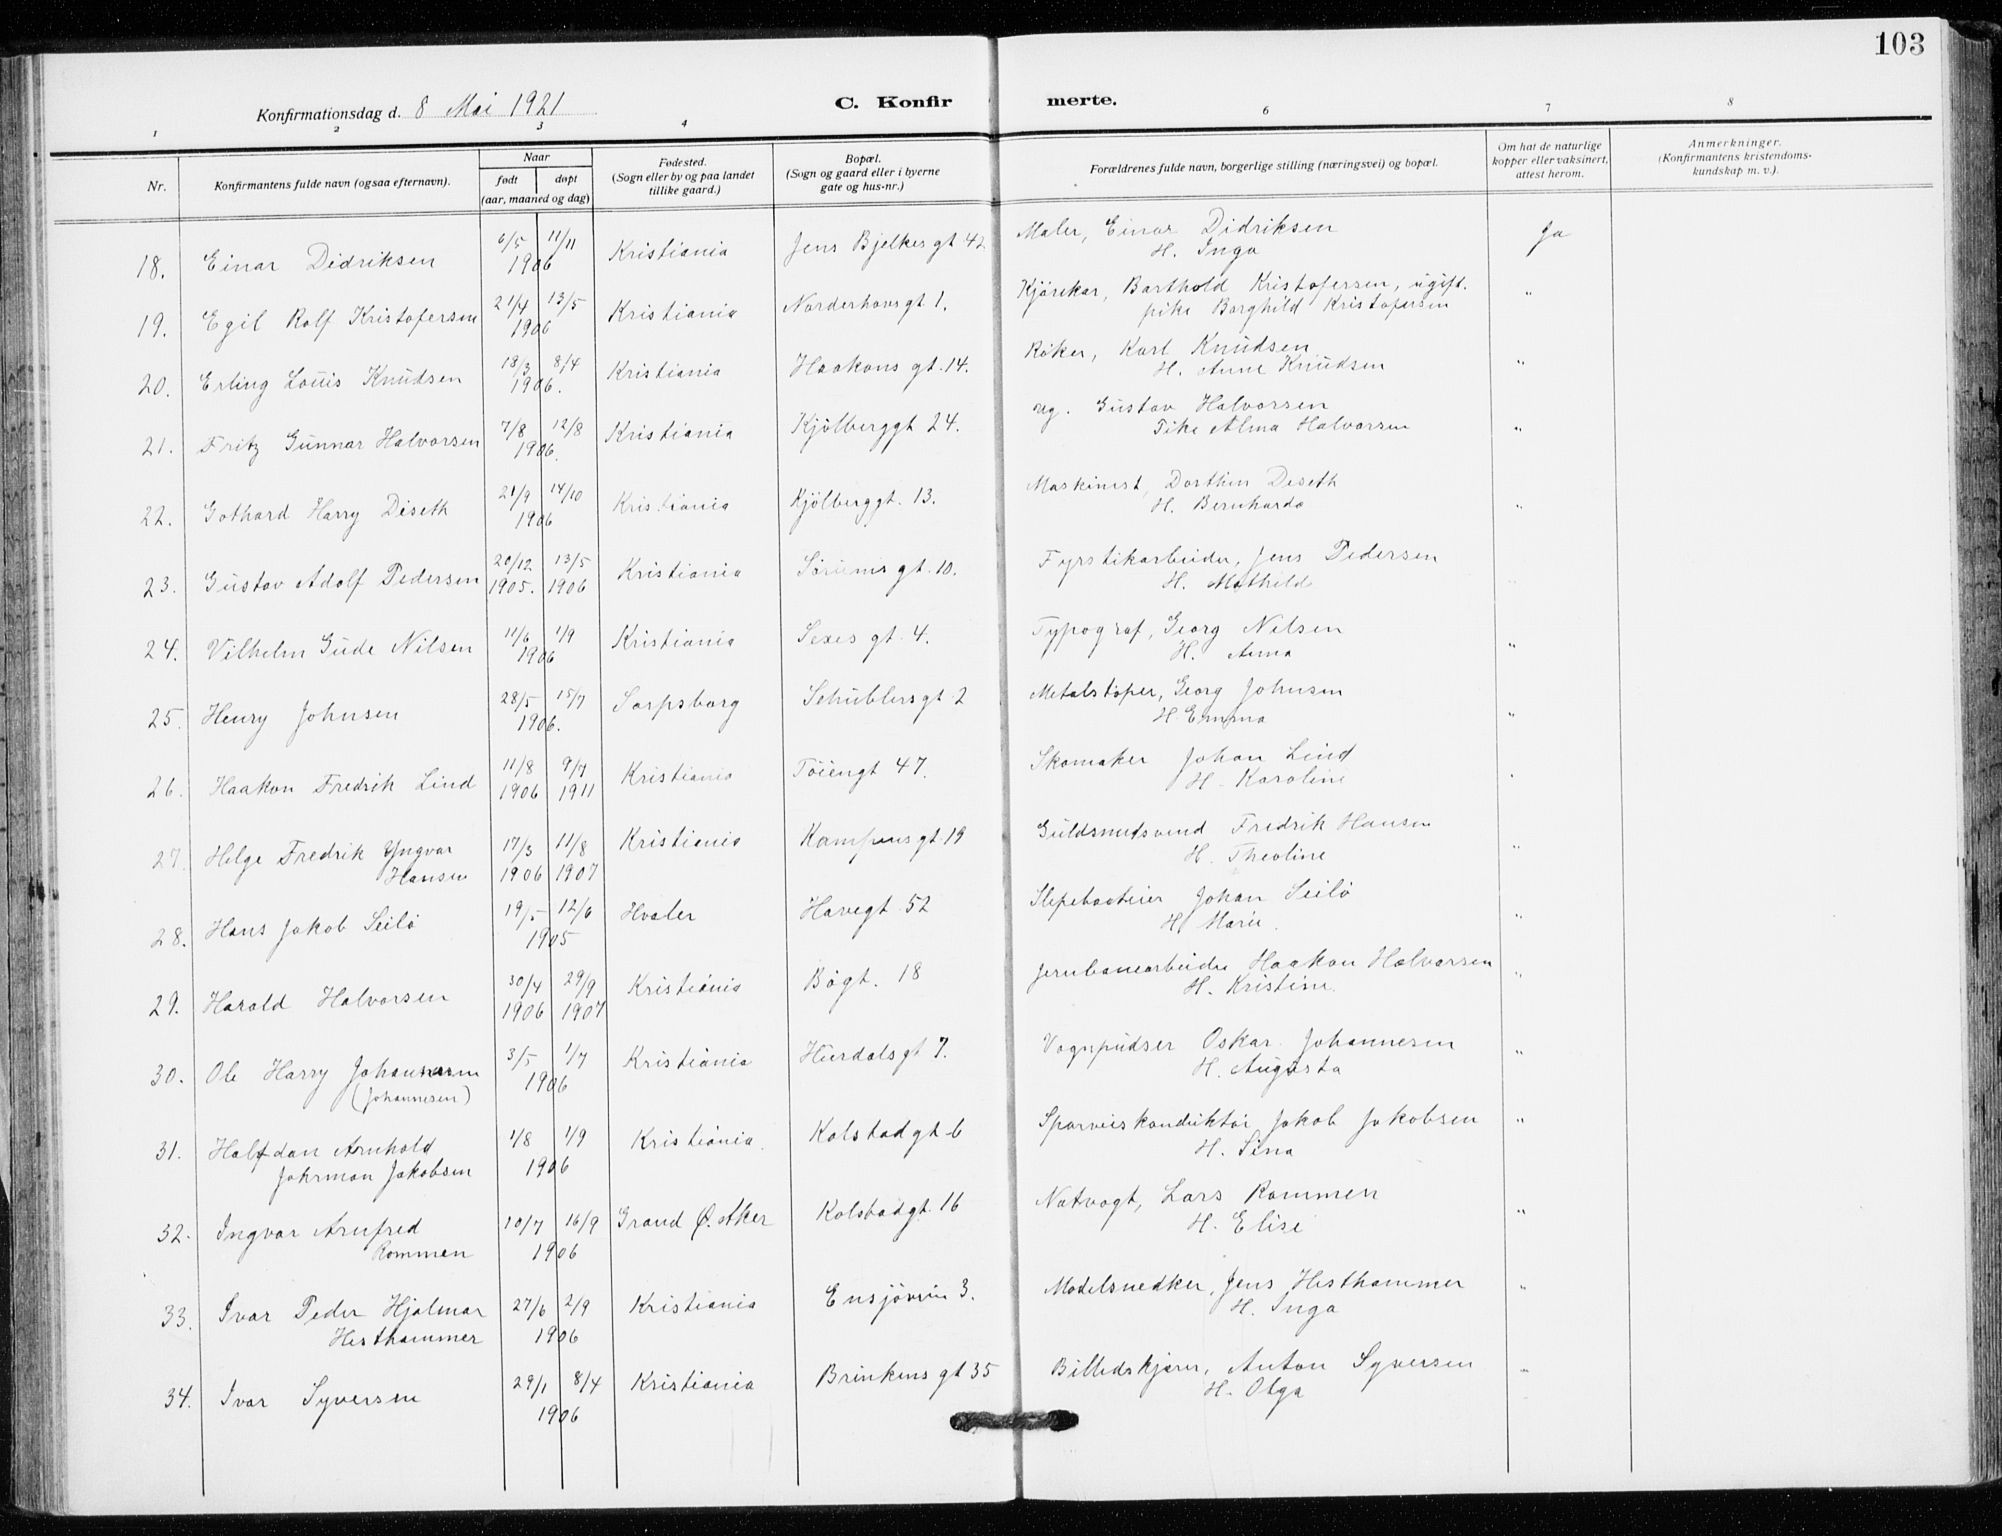 103
Konfirmationsdag d. 8 Mai 1921
C. Konfir merte.
1 2 3 4 6 7 8
Nr.
Konfirmantens fulde navn (ogsaa efternavn).
Naar
født døpt
(aar, maaned og dag)
Fødested.
(Sogn eller by og paa landet
tillike gaard.)
Bopæl.
(Sogn og gaard eller i byerne
gate og hus-nr.)
Forældrenes fulde navn, borgerlige stilling (næringsvei) og bopæl.
Om hat de naturlige
kopper eller vaksinert,
attest herom.
Anmerkninger.
(Konfirmantens kristendoms-
kundskap m. v.).
18. Einar Didriksen 6/5 11/11 1906 Kristiania Jens Bjelkes gt 42 Maler, Einar Didriksen Ja
H. Inga
19. Egil Rolf Kristofersen 21/4 13/5 1906 Kristiania Norderhovsgt 1. Kjørekar, Barthold Kristofersen, ugift. "
pike Borghild Kristofersen
20. Erling Louis Knudsen 18/3 8/4 1906. Kristiania Haakons gt. 14. Røker, Karl Knudsen "
H. Anne Knudsen
21. Fritz Gunnar Halvorsen 7/8 12/8 1906. Kristiania Kjølberggt 24. ug. Gustav Halvorsen "
Pike Alma Halvorsen
22. Gothard Harry Diseth 21/9 14/10 1906 Kristiania Kjølberggt. 13. Maskinist, Dorthin Diseth "
H. Bernharda
23. Gustav Adolf Pedersen 20/12 1905. 13/5 1906 Kristiania Sørums gt. 10. Fyrstikarbeider, Jens Pedersen
H. Mathild
24. Vilhelm Gude Nilsen 11/6 1/9 1906 Kristiania Sexes gt. 4. Typograf, Georg Nilsen "
H. Anna
25. Henry Johnsen 28/5 15/7 1906. Sarpsborg Schüblersgt 2 Metalstøper, Georg Johnsen "
H. Emma
26. Haakon Fredrik Lind 11/8 1906 9/7 1911 Kristiania Tøiengt 47. Skomaker Johan Lind
H. Karoline
27. Helge Fredrik Yngvar 17/3 1906 11/8 1907 Kristiania Kampensgt 19 Guldsmedsvend Fredrik Hansen "
Hansen H. Theoline
28. Hans Jakob Seilø 19/5 12/6 1905 Hvaler Havegt 52 Slepebaateier Johan Seilø "
H. Marie.
29. Harald Halvorsen 30/4 1906 29/9 1907 Kristiania Bøgt. 18 Jernbanearbeider Haakon Halvorsen "
H. Kristine.
30. Ole Harry Johannesen 3/5 1/7 1906 Kristiania Hurdalsgt 7. Vognpudser Oskar Johannesen "
(Johannesen) H. Augusta
31. Halfdan Arnhold 1/8 1/9 1906 Kristiania. Kolstadgt 6 Sporveiskonduktør Jakob Jakobsen "
Johrman Jakobsen H. Sina
32. Ingvar Arnfred 10/7 16/9 1906 Grand Ø. Aker Kolstadgt. 16 Natvagt, Lars Rommen "
Rommen H. Elise
33. Ivar Peder Hjalmar 27/6 2/9 1906 Kristiania Ensjøvein 3. Modelsnedker, Jens Hesthammer "
Hesthammer H. Inga
34. Ivar Syversen 29/1 8/4 1906 Kristiania Brinkens gt 35 Billedskjærer, Anton Syversen "
H. Olga